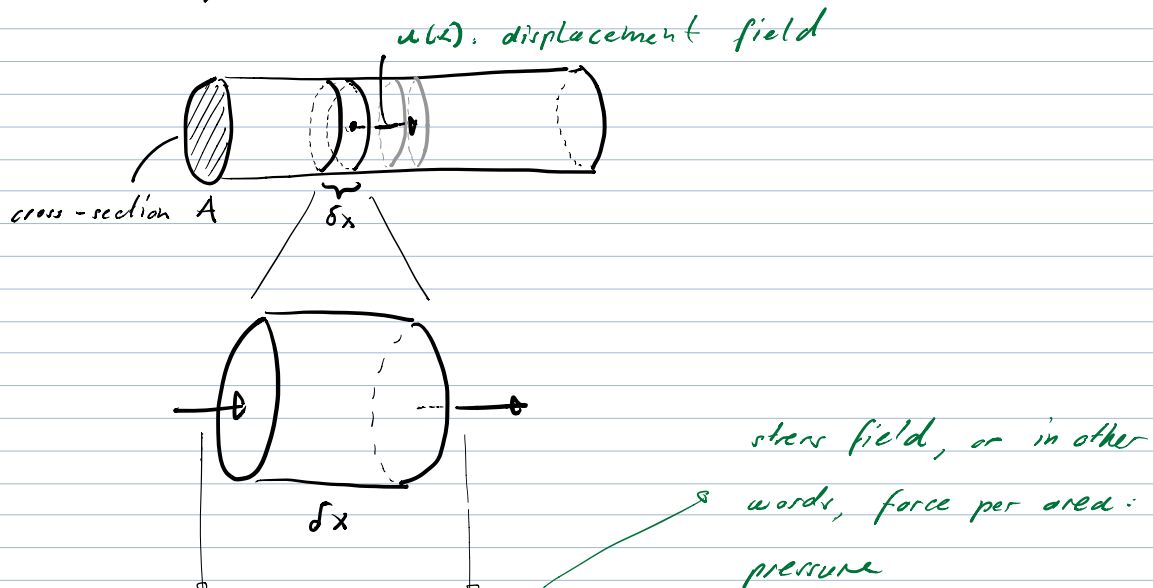 u(x): displacement field
cross-section A
δx
δx
stress field, or in other
words, force per area:
pressure